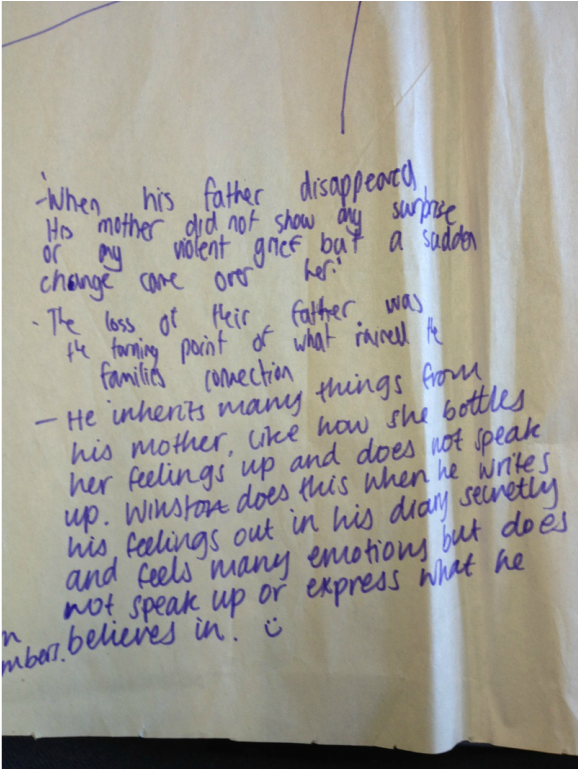 -'When his father disappeared
His mother did not show any surprise
or any violent grief but a sudden
change came over her.'
- The loss of their father was
the turning point of what ruined the
families connection
- He inherits many things from
his mother, like how she bottles
her feelings up and does not speak
up. Winston does this when he writes
his feelings out in his diary secretly
and feels many emotions but does
not speak up or express what he
believes in. ☺
n
mbers.